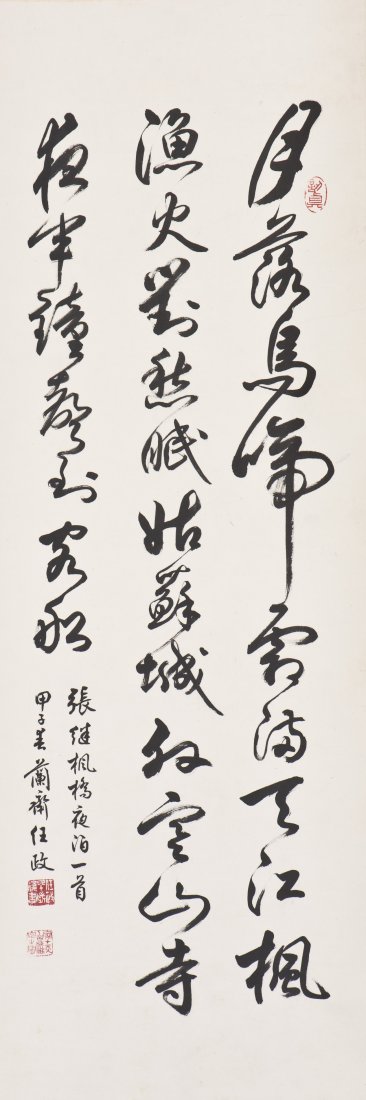 月落烏啼霜滿天江楓
漁火對愁眠姑蘇城外寒山寺
夜半鐘聲到客船
張継楓橋夜泊一首
甲子春蘭齋任政